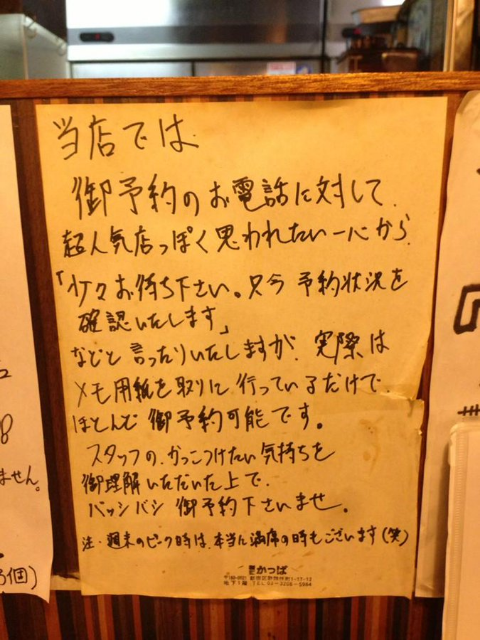 当店では
御予約のお電話に対して、
超人気店っぽく思われたい一心から
「少々お待ち下さい。只今予約状況を
確認いたします」
などと言ったりいたしますが、実際は
メモ用紙を取りに行っているだけで
ほとんど御予約可能です。
スタッフの、かっこつけたい気持ちを
御理解いただいた上で
バッシバシ御予約下さいませ。
注・週末のピーク時は、本当に満席の時もございます(笑)
かっぱ
ません。
個)